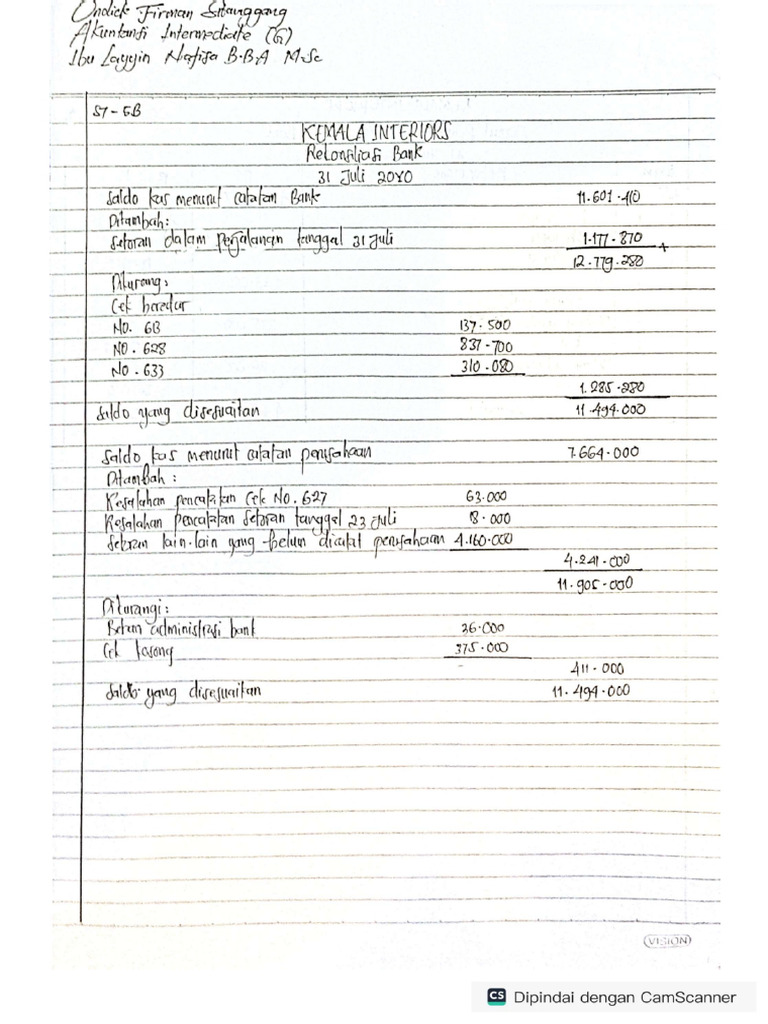 Ondick Firman Sitanggang
Akuntansi Intermediate (G)
Ibu Layyin Nafisa B.B.A M.Sc
S7-5B
KEMALA INTERIORS
Rekonsiliasi Bank
31 Juli 20Y0
Saldo kas menurut catatan Bank 11.601.410
Ditambah:
Setoran dalam perjalanan tanggal 31 Juli 1.177.870 +
12.779.280
Dikurang:
Cek beredar
No. 613 137.500
NO. 628 837.700
No. 633 310.080
1.285.280
Saldo yang disesuaikan 11.494.000
Saldo kas menurut catatan perusahaan 7.664.000
Ditambah:
Kesalahan pencatatan Cek No. 627 63.000
Kesalahan pencatatan Setoran tanggal 23 Juli 18.000
Setoran lain-lain yang belum dicatat perusahaan 4.160.000
4.241.000
11.905.000
Dikurangi:
Beban administrasi bank 36.000
Cek kosong 375.000
411.000
Saldo yang disesuaikan 11.494.000
VISION
CS Dipindai dengan CamScanner